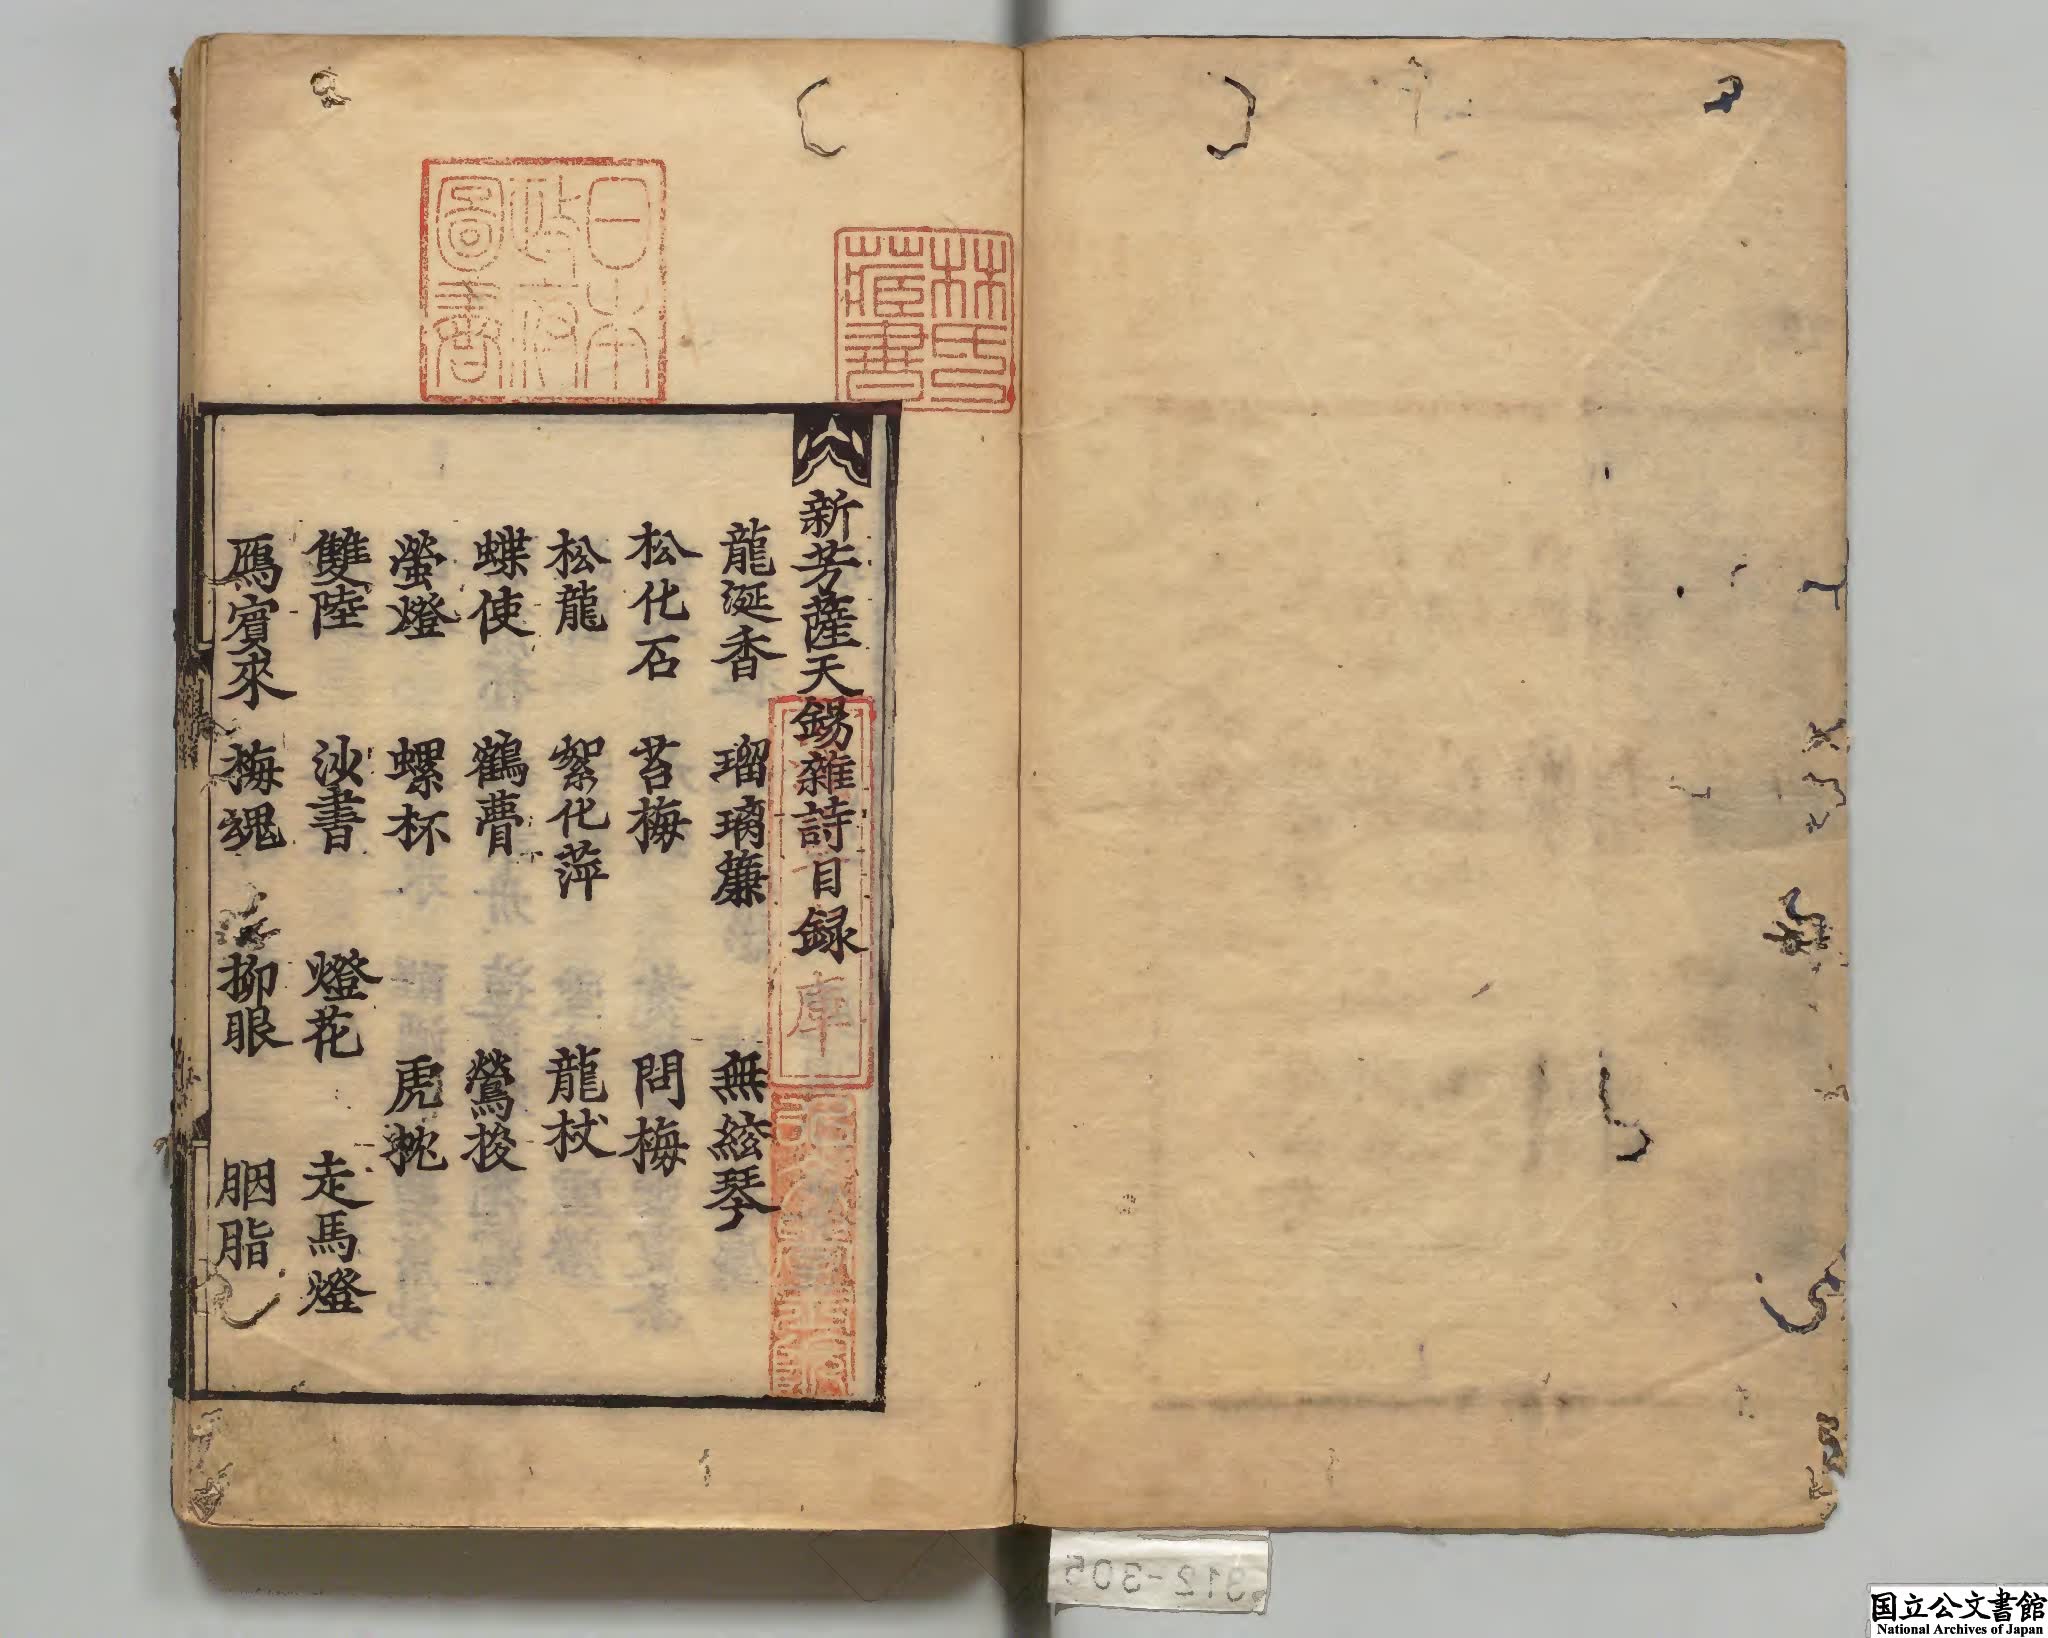 新芳薩天錫雜詩目録
龍涎香 瑠璃簾 無絃琴
松化石 苔梅 問梅
松龍 絮化萍 龍杖
蝶使 鶴夢 鶯梭
螢燈 螺杯 虎枕
雙陸 沙書 燈花 走馬燈
鴈賓來 梅魂 柳眼 胭脂
日本政府圖書
林氏藏書
庫
312-305
国立公文書館
National Archives of Japan